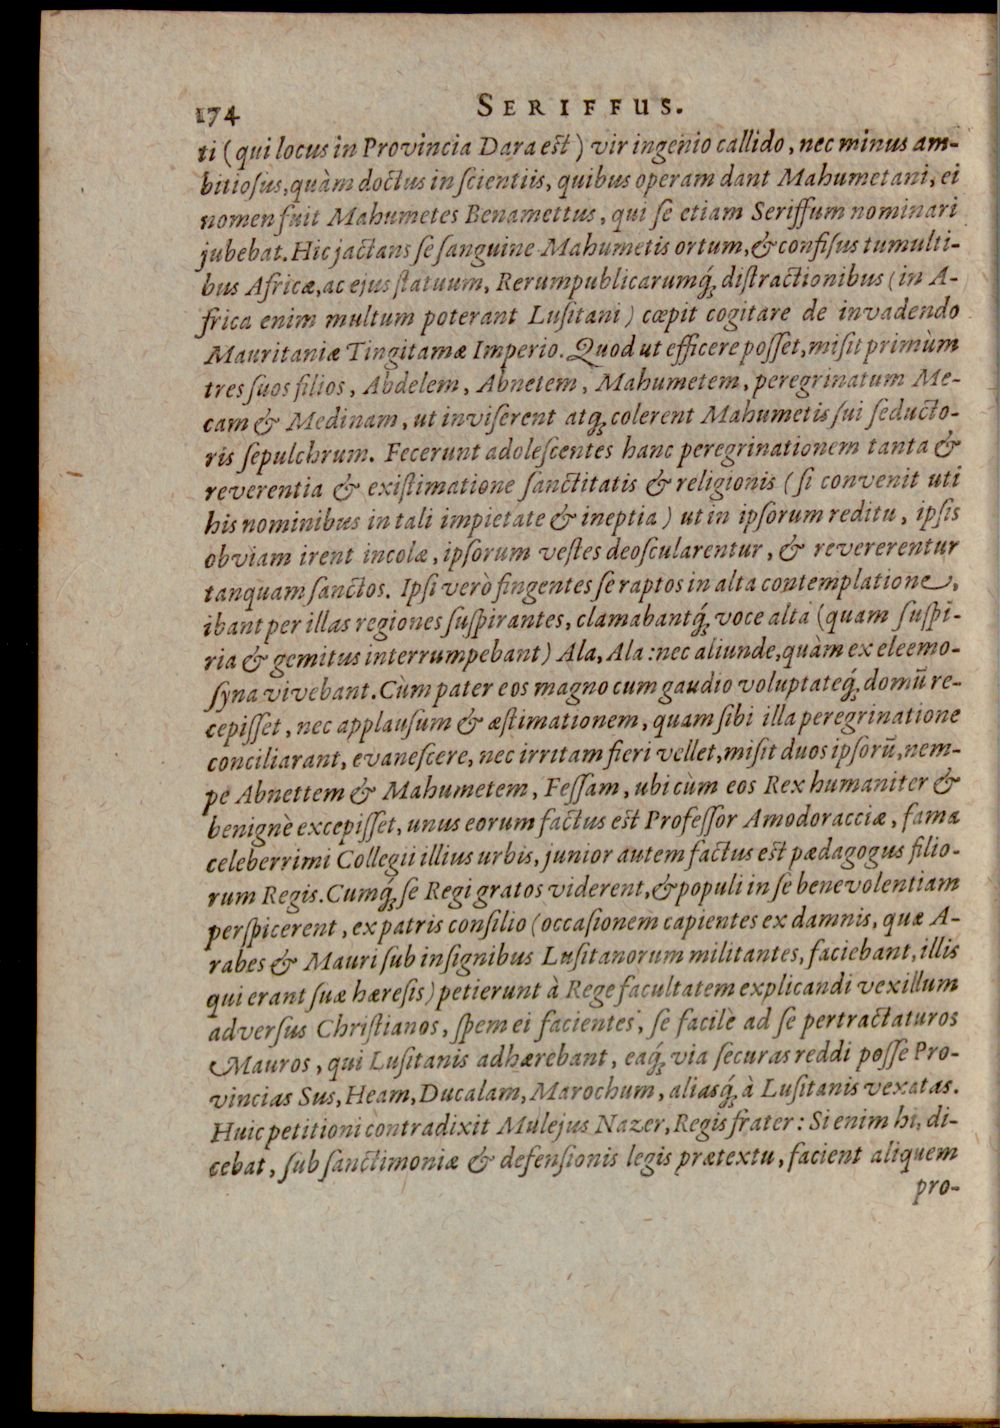 174 SERIFFUS.
ti (qui locus in Provincia Dara est) vir ingenio callido, nec minus am-
bitiosus, quàm doctus in scientiis, quibus operam dant Mahumetani, ei
nomen fuit Mahumetes Benamettus, qui se etiam Seriffum nominari
jubebat. Hic jactans se sanguine Mahumetis ortum, & confisus tumulti-
bus Africæ, ac ejus statuum, Rerumpublicarumq́; distractionibus (in A-
frica enim multum poterant Lusitani) cœpit cogitare de invadendo
Mauritaniæ Tingitamæ Imperio. Quod ut efficere posset, misit primùm
tres suos filios, Abdelem, Abnetem, Mahumetem, peregrinatum Me-
cam & Medinam, ut inviserent atq; colerent Mahumetis sui seducto-
ris sepulchrum. Fecerunt adolescentes hanc peregrinationem tanta &
reverentia & existimatione sanctitatis & religionis (si convenit uti
his nominibus in tali impietate & ineptia) ut in ipsorum reditu, ipsis
obviam irent incolæ, ipsorum vestes deoscularentur, & revererentur
tanquam sanctos. Ipsi verò fingentes se raptos in alta contemplatione,
ibant per illas regiones suspirantes, clamabantq́; voce alta (quam suspi-
ria & gemitus interrumpebant) Ala, Ala: nec aliunde, quàm ex eleemo-
syna vivebant. Cùm pater eos magno cum gaudio voluptateq́; domū re-
cepisset, nec applausum & æstimationem, quam sibi illa peregrinatione
conciliarant, evanescere, nec irritam fieri vellet, misit duos ipsorū, nem-
pe Abnettem & Mahumetem, Fessam, ubi cùm eos Rex humaniter &
benignè excepisset, unus eorum factus est Professor Amodoracciæ, fama
celeberrimi Collegii illius urbis, junior autem factus est pædagogus filio-
rum Regis. Cumq́; se Regi gratos viderent, & populi in se benevolentiam
perspicerent, ex patris consilio (occasionem capientes ex damnis, quæ A-
rabes & Mauri sub insignibus Lusitanorum militantes, faciebant, illis
qui erant suæ hæresis) petierunt à Rege facultatem explicandi vexillum
adversus Christianos, spem ei facientes, se facilè ad se pertractaturos
Mauros, qui Lusitanis adhærebant, eaq́; via securas reddi posse Pro-
vincias Sus, Heam, Ducalam, Marochum, aliasq́; à Lusitanis vexatas.
Huic petitioni contradixit Mulejus Nazer, Regis frater: Si enim hi, di-
cebat, sub sanctimoniæ & defensionis legis prætextu, facient aliquem
pro-